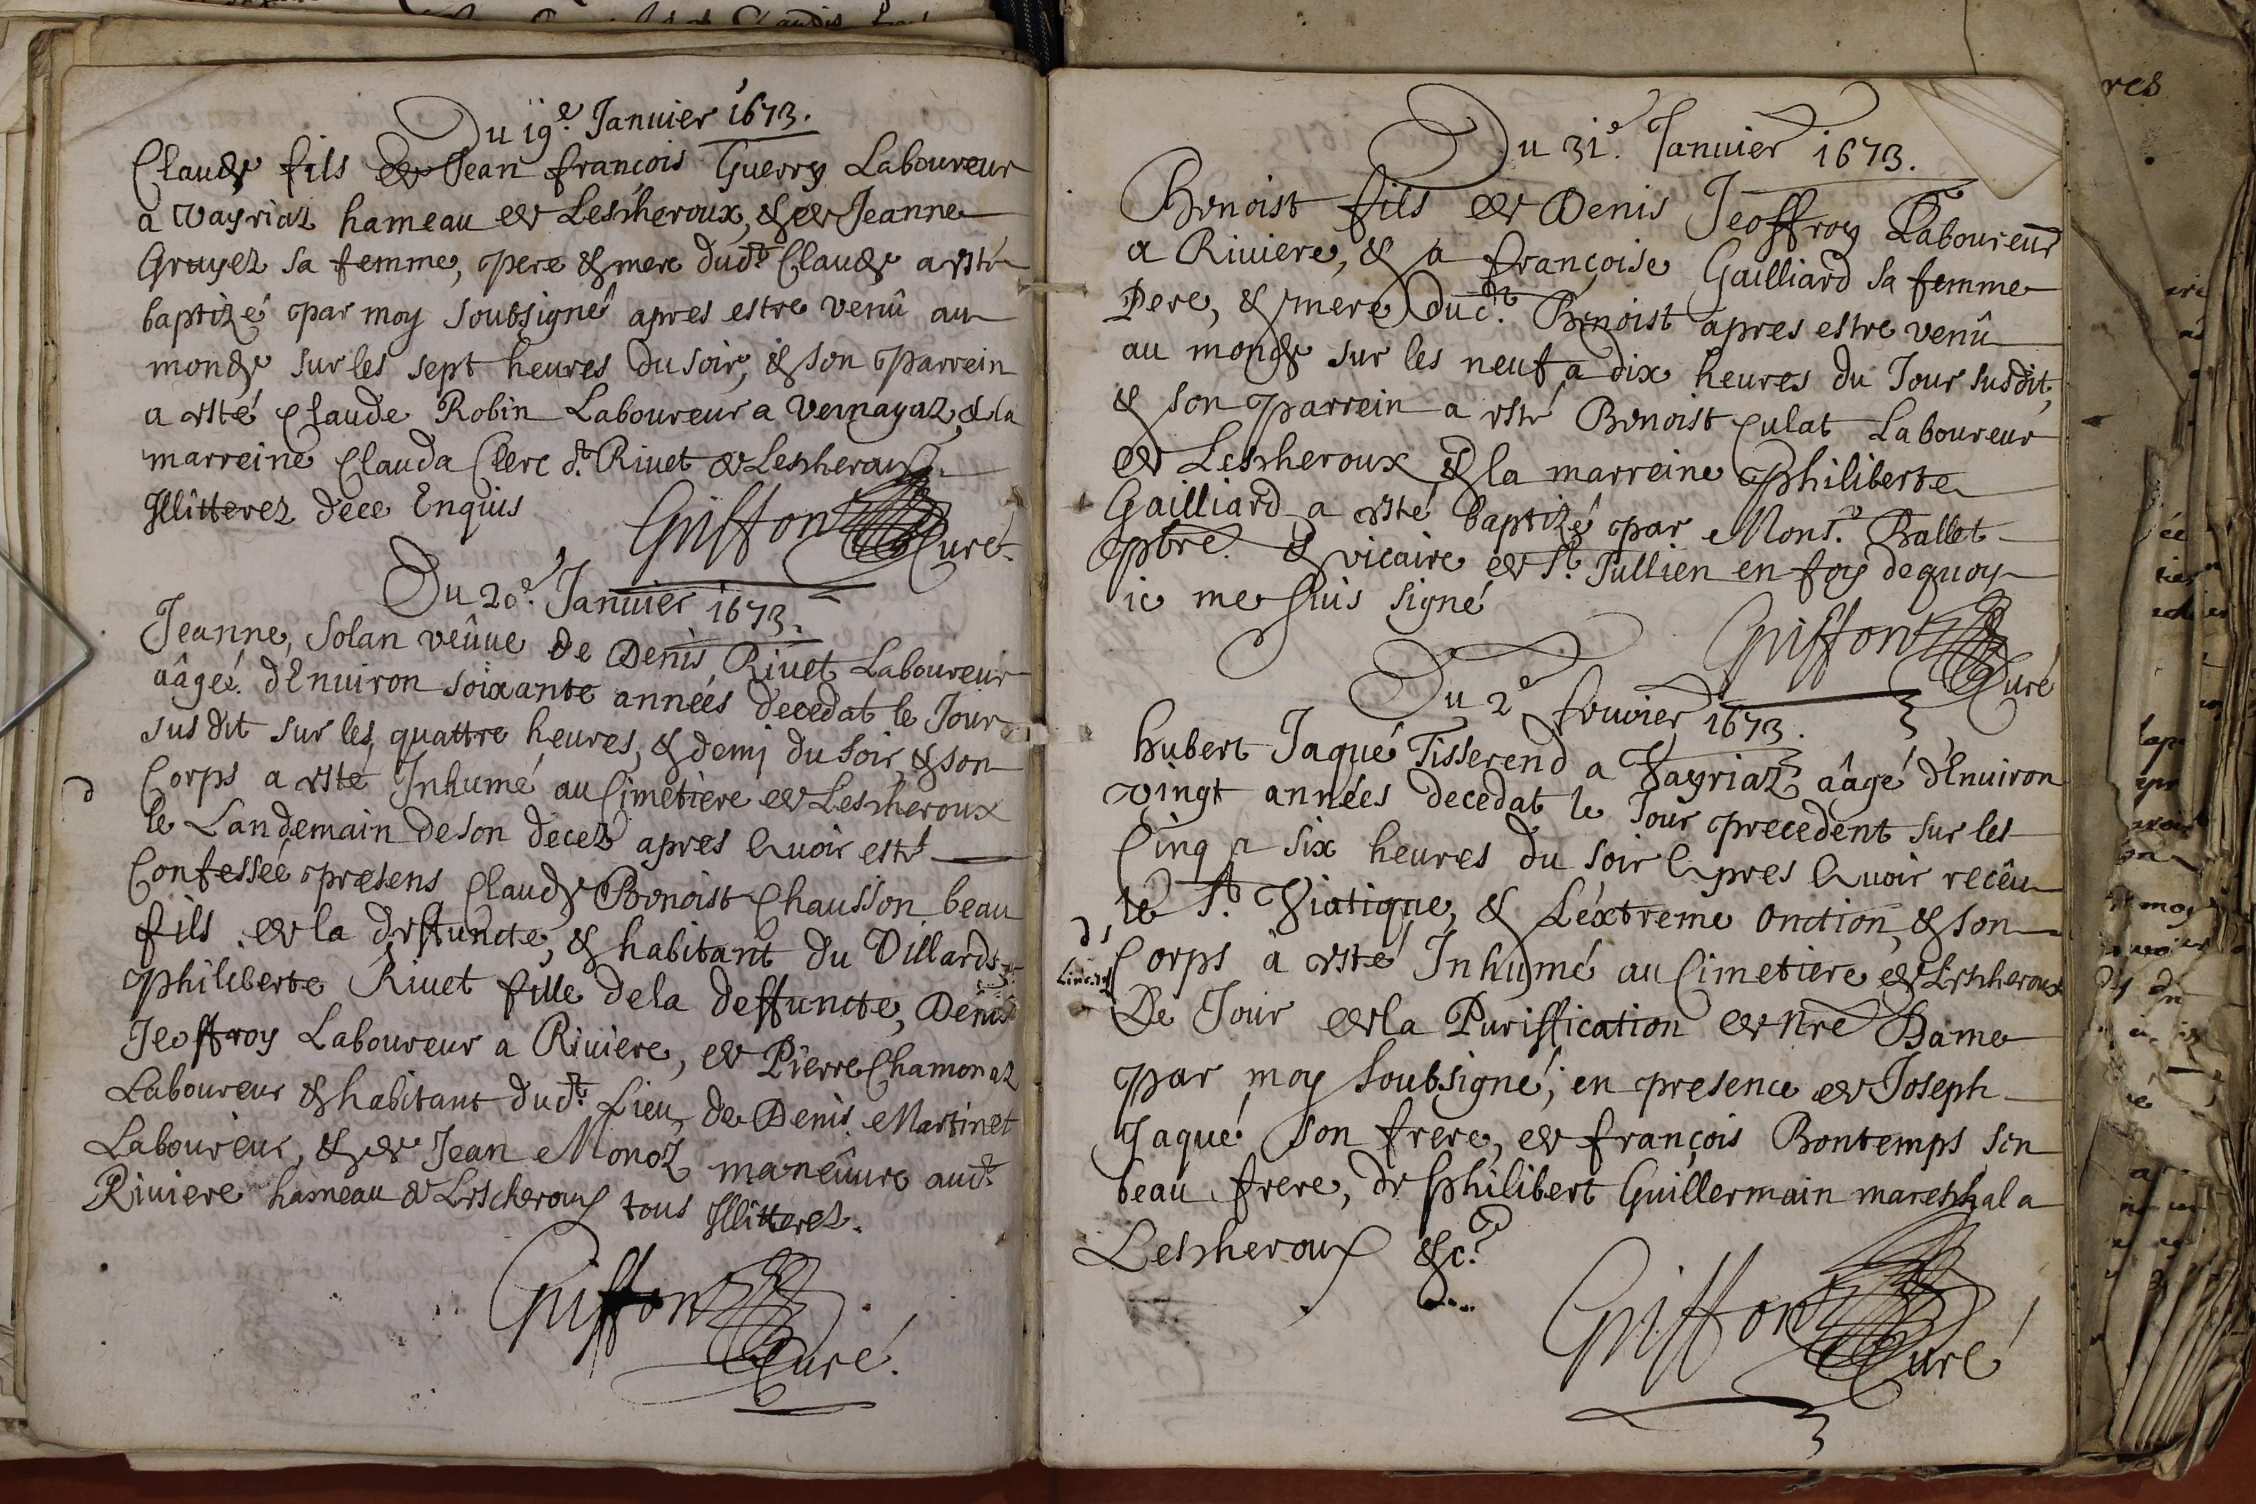 Du 19e. Januier 1673.
Claude fils de Jean francois Guerry Laboureur
a vayriaz hameau de Lescheroux, & de Jeanne
Gruyez sa femme, pere & mere dud.t Claude a esté
baptizé par moy soubsigné apres estre venû au
monde sur les sept heures du soir, & son parrein
a esté Claude Robin Laboureur a Vernayaz, & la
marreine Clauda Clerc d.t Riuet de Lescheroux.
Illitterez de ce Enquis
Griffon Curé.
Du 20e. Januier 1673.
Jeanne Solan veûue de Denis Riuet Laboureur
aâgeé d'Enuiron soixante annees decedat le Jour
susdit sur les quattre heures, & demj du soir, & son
Corps a esté Inhumé au Cimetiere de Lescheroux
d
le Landemain de son decez apres Auoir esté
Confesseé presens Claude Benoist Chausson beau
fils de la deffuncte, & habitant du Villard,
philiberte Riuet fille de la deffuncte, Denis
Jeoffroy Laboureur a Riuiere, de Pierre Chamonaz
Laboureur & habitant dud.t Lieu, de Denis Martinet
Laboureur, & de Jean Monoz maneûure aud.t
Riuiere hameau de Lescheroux tous Illitterez.
Griffon
Curé.
Du 31e. Januier 1673.
Benoist fils de Denis Jeoffroy Laboureur
a Riuiere, & a françoise Gailliard sa femme
Pere, & mere dud.t Benoist apres estre venû
au monde sur les neuf a dix heures du Jour susdit,
& son parrein a esté Benoist Culat Laboureur
de Lescheroux & la marreine philiberte
Gailliard a esté baptizé par Mons.r Ballet
pbre. & vicaire de S.t Jullien en foy de quoy
ie me suis signé
Griffon
Curé
Du 2e feuurier 1673.
hubert Jaqué Tisserend a Vayriaz aâgé d'Enuiron
vingt années decedat le Jour precedent sur les
Cinq a six heures du soir Apres Auoir recêu
le S.t Viatique, & Léxtreme Onction, & son
d
Corps à esté Inhumé au Cimetiere de Lescheroux
De Jour de la Puriffication de nre Dame
par moy soubsigné; en presence de Joseph
Jaqué son frere, de françois Bontemps son
beau frere, de philibert Guillermain mareschal a
Lescheroux &c.
Griffon
Curé